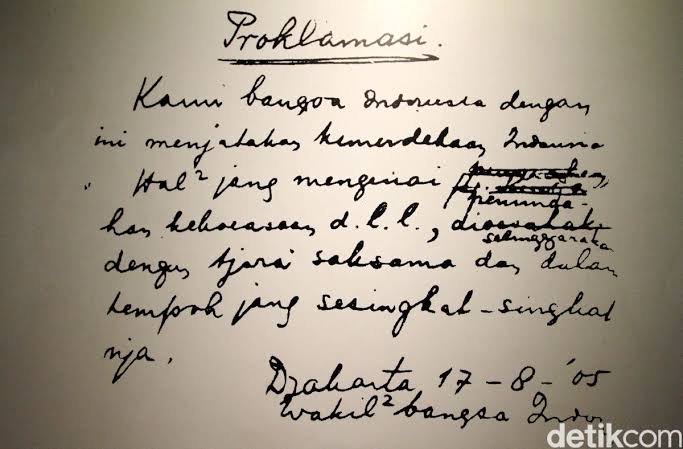 Proklamasi.
Kami bangsa Indonesia dengan
ini menjatakan kemerdekaan Indonesia
Hal² jang mengenai
peminda-
han kekoeasaan d.l.l., dioesahakan
selenggarakan
dengan tjara saksama dan dalam
tempoh jang sesingkat-singkat
nja.
Djakarta 17 - 8 - '05
Wakil² bangsa Indon
detikcom